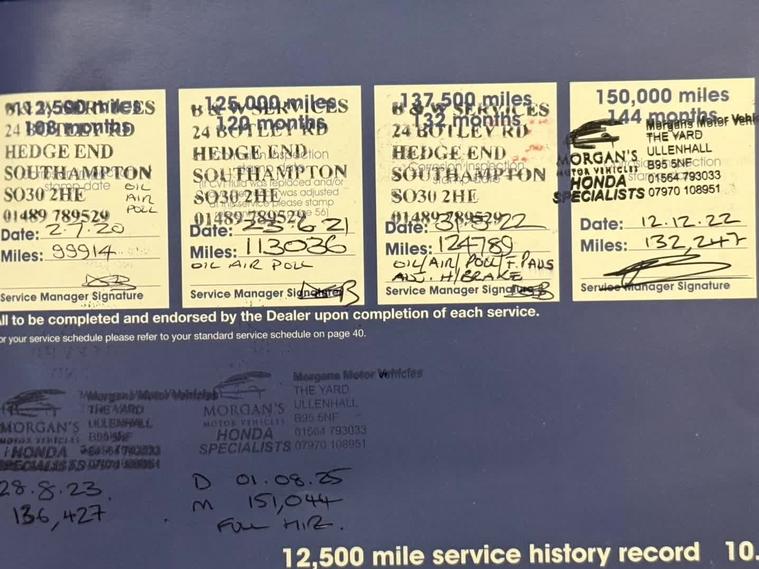 112,500 miles
108 months
B & W SERVICES
24 BOTLEY RD
HEDGE END
SOUTHAMPTON
stamp date
SO30 2HE
01489 789529
OIL
AIR
POLL
Date: 2.7.20
Miles: 99914
Service Manager Signature
125,000 miles
120 months
B & W SERVICES
24 BOTLEY RD
HEDGE END
Corrosion Inspection
SOUTHAMPTON
SO30 2HE
01489 789529
Date: 23.6.21
Miles: 113036
OIL AIR POLL
Service Manager Signature
137,500 miles
132 months
B & W SERVICES
24 BOTLEY RD
HEDGE END
Corrosion Inspection
SOUTHAMPTON
stamp date
SO30 2HE
01489 789529
Date: 31.3.22
Miles: 124789
OIL/AIR/POLL/F.PADS
ADJ. H/BRAKE
Service Manager Signature
150,000 miles
144 months
Morgans Motor Vehicles
THE YARD
ULLENHALL
B95 5NF
01564 793033
07970 108951
MORGAN'S
MOTOR VEHICLES
HONDA
SPECIALISTS
Date: 12.12.22
Miles: 132,247
Service Manager Signature
All to be completed and endorsed by the Dealer upon completion of each service.
or your service schedule please refer to your standard service schedule on page 40.
Morgans Motor Vehicles
THE YARD
ULLENHALL
B95 5NF
MORGAN'S
MOTOR VEHICLES
HONDA
SPECIALISTS
28.8.23.
136,427
Morgans Motor Vehicles
THE YARD
ULLENHALL
B95 5NF
01564 793033
07970 108951
MORGAN'S
MOTOR VEHICLES
HONDA
SPECIALISTS
D 01.08.25
M 151,044
FULL
12,500 mile service history record 10.